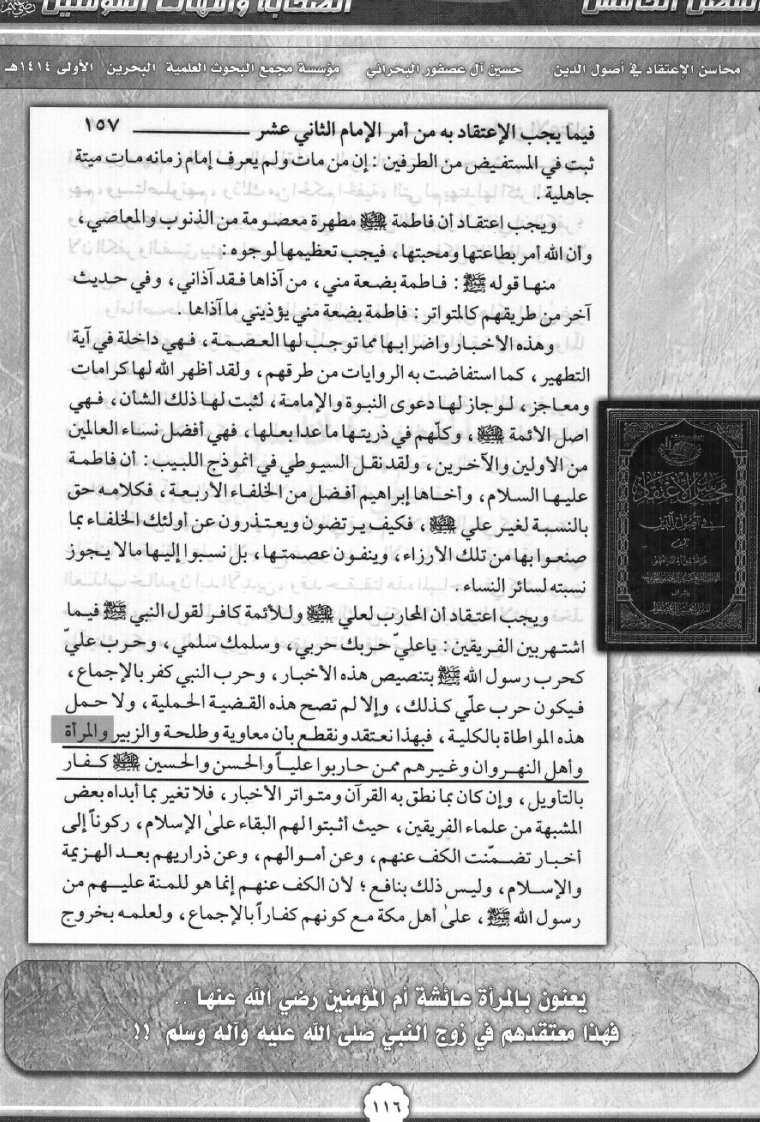 الفصل الخامس
الصحابة وأمهات المؤمنين
محاسن الإعتقاد في أصول الدين حسين آل عصفور البحراني مؤسسة مجمع البحوث العلمية البحرين الأولى ١٤١٤هـ
فيما يجب الإعتقاد به من أمر الإمام الثاني عشر ــــــــــــ ١٥٧
ثبت في المستفيض من الطرفين : إن من مات ولم يعرف إمام زمانه مات ميتة
جاهلية .
ويجب إعتقاد أن فاطمة ﷺ مطهرة معصومة من الذنوب والمعاصي ،
وأن الله أمر بطاعتها ومحبتها ، فيجب تعظيمها لوجوه :
منها قوله ﷺ : فاطمة بضعة مني ، من آذاها فقد آذاني ، وفي حديث
آخر من طريقهم كالمتواتر : فاطمة بضعة مني يؤذيني ما آذاها .
وهذه الاخبار واضرابها مما توجب لها العصمة ، فهي داخلة في آية
التطهير ، كما استفاضت به الروايات من طرقهم ، ولقد أظهر الله لها كرامات
ومعاجز ، لوجاز لها دعوى النبوة والإمامة ، لثبت لها ذلك الشأن ، فهي
اصل الأئمة ﷺ ، وكلّهم في ذريتها ما عدا بعلها ، فهي أفضل نساء العالمين
من الاولين والآخرين ، ولقد نقل السيوطي في انموذج اللبيب : أن فاطمة
عليها السلام ، وأخاها إبراهيم أفضل من الخلفاء الاربعة ، فكلامه حق
بالنسبة لغير علي ﷺ ، فكيف يرتضون ويعتذرون عن أولئك الخلفاء بما
صنعوا بها من تلك الارزاء ، وينفون عصمتها ، بل نسبوا إليها مالا يجوز
نسبته لسائر النساء .
ويجب اعتقاد أن المحارب لعلي ﷺ وللأئمة كافر لقول النبي ﷺ فيما
اشتهر بين الفريقين : ياعليّ حربك حربي ، وسلمك سلمي ، وحرب عليّ
كحرب رسول الله ﷺ بتنصيص هذه الاخبار ، وحرب النبي كفر بالإجماع ،
فيكون حرب علّي كذلك ، وإلا لم تصح هذه القضية الحملية ، ولا حمل
هذه المواطاة بالكلية ، فبهذا نعتقد ونقطع بان معاوية وطلحة والزبير والمرأة
وأهل النهروان وغيرهم ممن حاربوا علياً والحسن والحسين ﷺ كفار
بالتأويل ، وإن كان بما نطق به القرآن ومتواتر الأخبار ، فلا تغير بما أبداه بعض
المشبهة من علماء الفريقين ، حيث أثبتوا لهم البقاء على الإسلام ، ركوناً إلى
أخبار تضمّنت الكف عنهم ، وعن أموالهم ، وعن ذراريهم بعد الهزيمة
والإسلام ، وليس ذلك بنافع ؛ لأن الكف عنهم إنما هو للمنة عليهم من
رسول الله ﷺ ، على أهل مكة مع كونهم كفاراً بالإجماع ، ولعلمه بخروج
محاسن الإعتقاد
في أصول الدين
يعنون بالمرأة عائشة أم المؤمنين رضي الله عنها ..
فهذا معتقدهم في زوج النبي صلى الله عليه وآله وسلم !!
١١٦